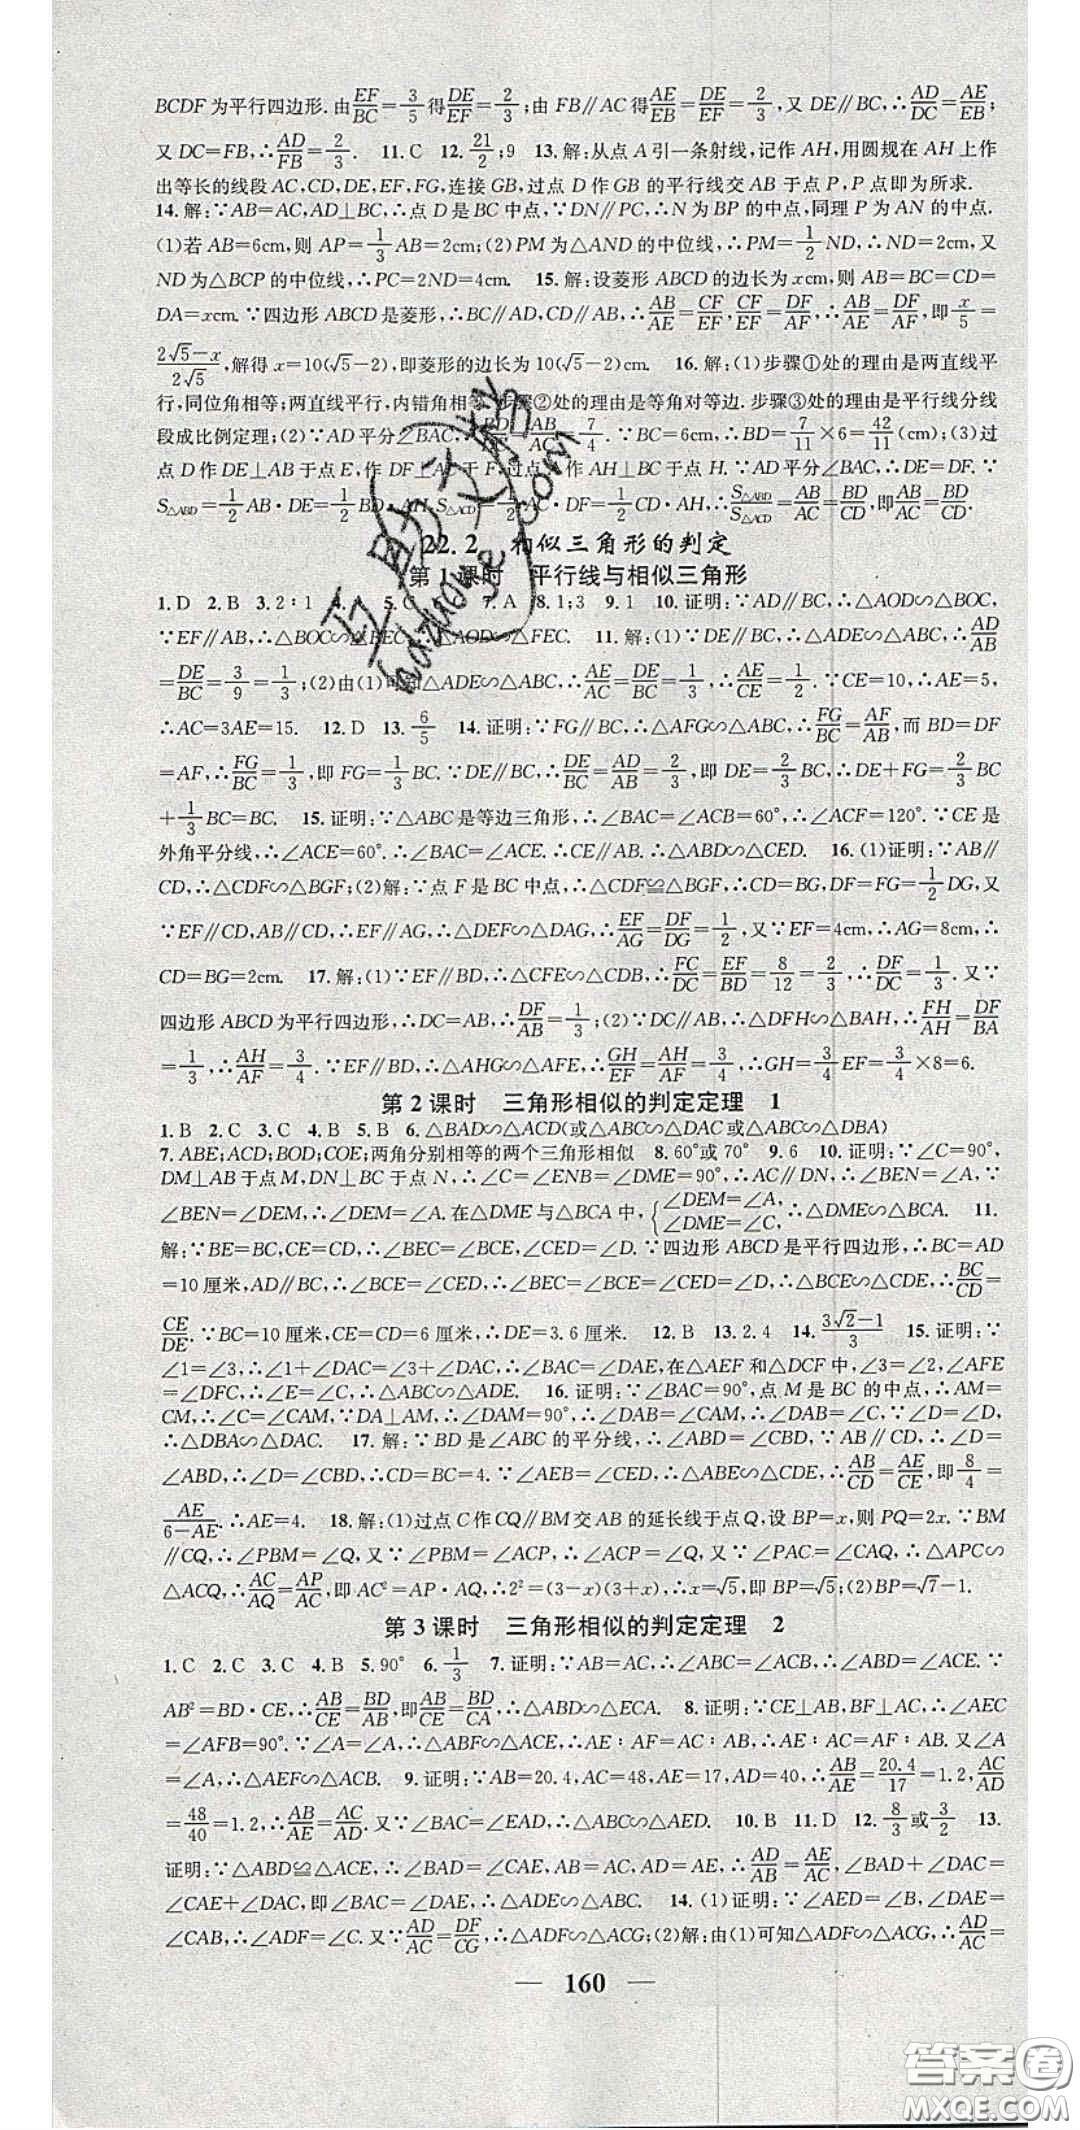 BCDF为平行四边形.由EF/BC=3/5得DE/EF=2/3;由FB∥AC得AE/EB=DE/EF=2/3,又DE∥BC,∴AD/DC=AE/EB;
又DC=FB,∴AD/FB=2/3. 11.C 12.21/2;9 13.解:从点A引一条射线,记作AH,用圆规在AH上作
出等长的线段AC,CD,DE,EF,FG,连接GB,过点D作GB的平行线交AB于点P,P点即为所求.
14.解:∵AB=AC,AD⊥BC,∴点D是BC中点,∵DN∥PC,∴N为BP的中点,同理P为AN的中点.
(1)若AB=6cm,则AP=1/3AB=2cm;(2)PM为△AND的中位线,∴PM=1/2ND,∴ND=2cm,又
ND为△BCP的中位线,∴PC=2ND=4cm. 15.解:设菱形ABCD的边长为xcm,则AB=BC=CD=
DA=xcm.∵四边形ABCD是菱形,∴BC∥AD,CD∥AB,∴AB/AE=CF/EF,CF/EF=DF/AF,∴AB/AE=DF/AF,即x/5=
(2√5-x)/(2√5),解得x=10(√5-2),即菱形的边长为10(√5-2)cm. 16.解:(1)步骤①处的理由是两直线平
行,同位角相等;两直线平行,内错角相等.步骤②处的理由是等角对等边.步骤③处的理由是平行线分线
段成比例定理;(2)∵AD平分∠BAC,∴BD/ =AB/AC=7/4.∵BC=6cm,∴BD=7/11×6=42/11(cm);(3)过
点D作DE⊥AB于点E,作DF⊥AC于F,过点 作AH⊥BC于点H.∵AD平分∠BAC,∴DE=DF.∵
S△ABD=1/2AB·DE=1/2BD·AH,S△ACD=1/2AC·DF=1/2CD·AH,∴S△ABD/S△ACD=AB/AC=BD/CD,即AB/AC=BD/CD.
22.2 相似三角形的判定
第1课时 平行线与相似三角形
1.D 2.B 3.2∶1 4. 5.C 7.A 8.1;3 9.1 10.证明:∵AD∥BC,∴△AOD∽△BOC,
∵EF∥AB,∴△BOC∽△FEC,∴△AOD∽△FEC. 11.解:(1)∵DE∥BC,∴△ADE∽△ABC,∴AD/AB
=DE/BC=3/9=1/3;(2)由(1)可知△ADE∽△ABC,∴AE/AC=DE/BC=1/3,∴AE/CE=1/2.∵CE=10,∴AE=5,
∴AC=3AE=15. 12.D 13.6/5 14.证明:∵FG∥BC,∴△AFG∽△ABC,∴FG/BC=AF/AB,而BD=DF
=AF,∴FG/BC=1/3,即FG=1/3BC.∵DE∥BC,∴DE/BC=AD/AB=2/3,即DE=2/3BC,∴DE+FG=2/3BC
+1/3BC=BC. 15.证明:∵△ABC是等边三角形,∴∠BAC=∠ACB=60°,∴∠ACF=120°.∵CE是
外角平分线,∴∠ACE=60°.∴∠BAC=∠ACE.∴CE∥AB.∴△ABD∽△CED. 16.(1)证明:∵AB∥
CD,∴△CDF∽△BGF;(2)解:∵点F是BC中点,∴△CDF≌△BGF,∴CD=BG,DF=FG=1/2DG,又
∵EF∥CD,AB∥CD,∴EF∥AG,∴△DEF∽△DAG,∴EF/AG=DF/DG=1/2,又∵EF=4cm,∴AG=8cm,∴
CD=BG=2cm. 17.解:(1)∵EF∥BD,∴△CFE∽△CDB,∴FC/DC=EF/BD=8/12=2/3,∴DF/DC=1/3.又∵
四边形ABCD为平行四边形,∴DC=AB,∴DF/AB=1/3;(2)∵DC∥AB,∴△DFH∽△BAH,∴FH/AH=DF/BA
=1/3,∴AH/AF=3/4.∵EF∥BD,∴△AHG∽△AFE,∴GH/EF=AH/AF=3/4,∴GH=3/4EF=3/4×8=6.
第2课时 三角形相似的判定定理 1
1.B 2.C 3.C 4.B 5.B 6.△BAD∽△ACD(或△ABC∽△DAC或△ABC∽△DBA)
7.ABE;ACD;BOD;COE;两角分别相等的两个三角形相似 8.60°或70° 9.6 10.证明:∵∠C=90°,
DM⊥AB于点M,DN⊥BC于点N,∴∠C=∠ENB=∠DME=90°,∴AC∥DN,∴∠BEN=∠A,∵
∠BEN=∠DEM,∴∠DEM=∠A.在△DME与△BCA中,{∠DEM=∠A,∠DME=∠C,∴△DME∽△BCA. 11.
解:∵BE=BC,CE=CD,∴∠BEC=∠BCE,∠CED=∠D.∵四边形ABCD是平行四边形,∴BC=AD
=10厘米,AD∥BC,∴∠BCE=∠CED,∴∠BEC=∠BCE=∠CED=∠D,∴△BCE∽△CDE,∴BC/CD=
CE/DE.∵BC=10厘米,CE=CD=6厘米,∴DE=3.6厘米. 12.B 13.2.4 14.(3√2-1)/3 15.证明:∵
∠1=∠3,∴∠1+∠DAC=∠3+∠DAC,∴∠BAC=∠DAE,在△AEF和△DCF中,∠3=∠2,∠AFE
=∠DFC,∴∠E=∠C,∴△ABC∽△ADE. 16.证明:∵∠BAC=90°,点M是BC的中点,∴AM=
CM,∴∠C=∠CAM,∵DA⊥AM,∴∠DAM=90°,∴∠DAB=∠CAM,∴∠DAB=∠C,∵∠D=∠D,
∴△DBA∽△DAC. 17.解:∵BD是∠ABC的平分线,∴∠ABD=∠CBD,∵AB∥CD,∴∠D=
∠ABD,∴∠D=∠CBD,∴CD=BC=4.∵∠AEB=∠CED,∴△ABE∽△CDE,∴AB/CD=AE/CE,即8/4=
AE/(6-AE).∴AE=4. 18.解:(1)过点C作CQ∥BM交AB的延长线于点Q,设BP=x,则PQ=2x.∵BM
∥CQ,∴∠PBM=∠Q,又∵∠PBM=∠ACP,∴∠ACP=∠Q,又∵∠PAC=∠CAQ,∴△APC∽
△ACQ,∴AC/AQ=AP/AC,即AC²=AP·AQ,∴2²=(3-x)(3+x),∴x=√5,即BP=√5;(2)BP=√7-1.
第3课时 三角形相似的判定定理 2
1.C 2.C 3.C 4.B 5.90° 6.1/3 7.证明:∵AB=AC,∴∠ABC=∠ACB,∴∠ABD=∠ACE.∵
AB²=BD·CE,∴AB/CE=BD/AB,即AB/CE=BD/CA,∴△ABD∽△ECA. 8.证明:∵CE⊥AB,BF⊥AC,∴∠AEC
=∠AFB=90°.∵∠A=∠A,∴△ABF∽△ACE,∴AE∶AF=AC∶AB,∴AE∶AC=AF∶AB.又∠A
=∠A,∴△AEF∽△ACB. 9.证明:∵AB=20.4,AC=48,AE=17,AD=40,∴AB/AE=20.4/17=1.2,AC/AD
=48/40=1.2,∴AB/AE=AC/AD.又∵∠BAC=∠EAD,∴△ABC∽△AED. 10.B 11.D 12.8/3或3/2 13.
证明:∵△ABD≌△ACE,∴∠BAD=∠CAE,AB=AC,AD=AE,∴AD/AB=AE/AC,∠BAD+∠DAC=
∠CAE+∠DAC,即∠BAC=∠DAE,∴△ADE∽△ABC. 14.(1)证明:∵∠AED=∠B,∠DAE=
∠CAB,∴∠ADF=∠C.又∵AD/AC=DF/CG,∴△ADF∽△ACG;(2)解:由(1)可知△ADF∽△ACG,∴AD/AC=
— 160 —
答案圈
MXQE.COM